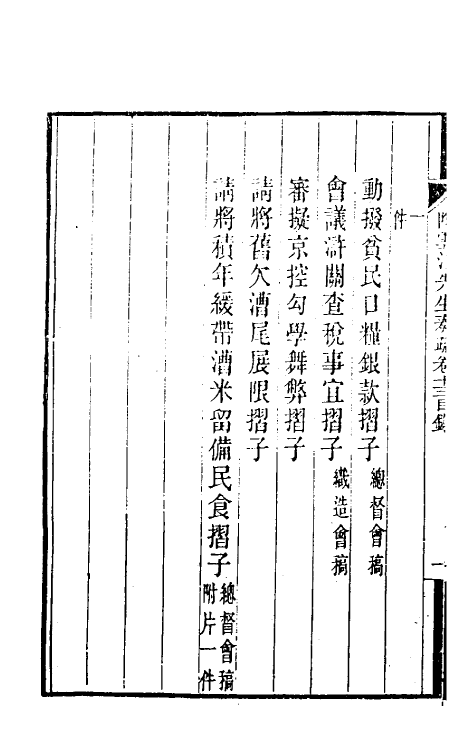 一件
動撥貧民口糧銀款摺子總督會稿
會議滸關查稅事宜摺子織造會稿
審擬京控勾學舞弊摺子
請將舊欠漕尾展限摺子
請將積年緩帶漕米留備民食摺子總督會稿附片一件
先生奏疏卷十三目錄